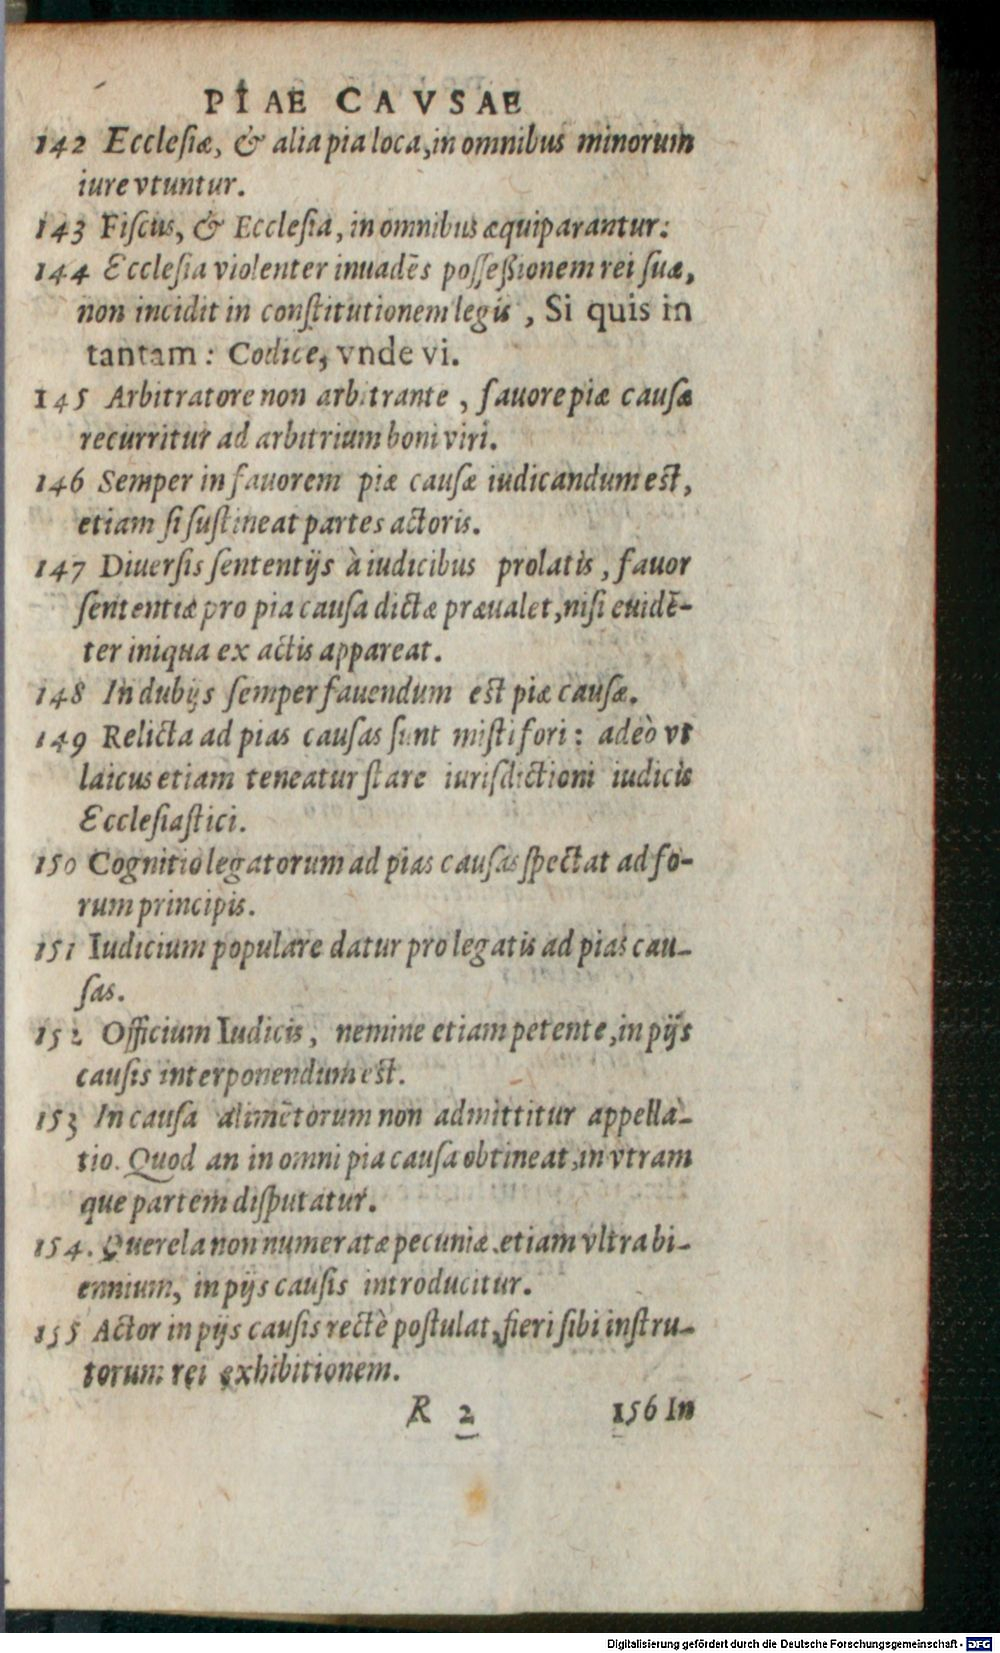 PIAE CAVSAE
142 Ecclesiæ, & alia pia loca, in omnibus minorum
iure vtuntur.
143 Fiscus, & Ecclesia, in omnibus æquiparantur:
144 Ecclesia violenter inuadẽs possessionem rei suæ,
non incidit in constitutionem legis, Si quis in
tantam: Codice, vnde vi.
145 Arbitratore non arbitrante, fauore piæ causæ
recurritur ad arbitrium boni viri.
146 Semper in fauorem piæ causæ iudicandum est,
etiam si sustineat partes actoris.
147 Diuersis sententijs à iudicibus prolatis, fauor
sententiæ pro pia causa dictæ præualet, nisi euidẽ-
ter iniqua ex actis appareat.
148 In dubijs semper fauendum est piæ causæ.
149 Relicta ad pias causas sunt misti fori: adeò vt
laicus etiam teneatur stare iurisdictioni iudicis
Ecclesiastici.
150 Cognitio legatorum ad pias causas spectat ad fo-
rum principis.
151 Iudicium populare datur pro legatis ad pias cau-
sas.
152 Officium Iudicis, nemine etiam petente, in pijs
causis interponendum est.
153 In causa alimẽtorum non admittitur appella-
tio. Quod an in omni pia causa obtineat, in vtram
que partem disputatur.
154. Querela non numeratæ pecuniæ etiam vltra bi-
ennium, in pijs causis introducitur.
155 Actor in pijs causis rectè postulat, fieri sibi instru-
torum rei exhibitionem.
R 2 156 In
Digitalisierung gefördert durch die Deutsche Forschungsgemeinschaft - DFG